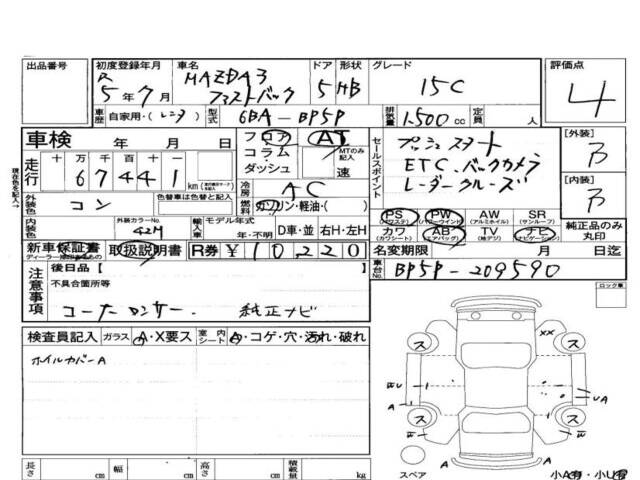 出品番号 初度登録年月 車名 ドア 形状 グレード 評価点
R 5年 7月 MAZDA3 ファストバック 5 HB 15C 4
車歴 自家用・(レンタ) 型式 6BA-BP5P 排気量 1,500cc 定員 人
車検 年 月 日 フロア AT セールスポイント プッシュスタート [外装] ア
十 万 千 百 十 一 コラム MTのみ記入 ETC. バックカメラ
走行 67441 km ダッシュ 速 レーダークルーズ [内装] ア
現在色を記入→
外装色 コン 色替車は色替と記入 冷房 AC
燃料 ガソリン・軽油・( )
内装色 外装カラーNo. 42M 輸入車 モデル年式 年・不明 D車・並 右H・左H
PS (パワステ) PW (パワーウィンドウ) AW (アルミホイル) SR (サンルーフ)
カワ (カワシート) AB (エアバッグ) TV (地デジ) ナビ (ナビゲーション) 純正品のみ丸印
新車保証書 ディーラー 取扱説明書 R券 ¥10,220 名変期限 月 日迄
注意事項 後日品 [ ] 車台No. BP5P-209590
不具合箇所等 ロック車
コーナーセンサー. 純正ナビ
検査員記入 ガラス A・X要ス 室内シート A・コゲ・穴・汚れ・破れ
ホイルカバーA
ス ス ス ス
XX
A
UA
A A
スペア
小A有・小U有
長さ cm 幅 cm 高さ cm 積載量 kg